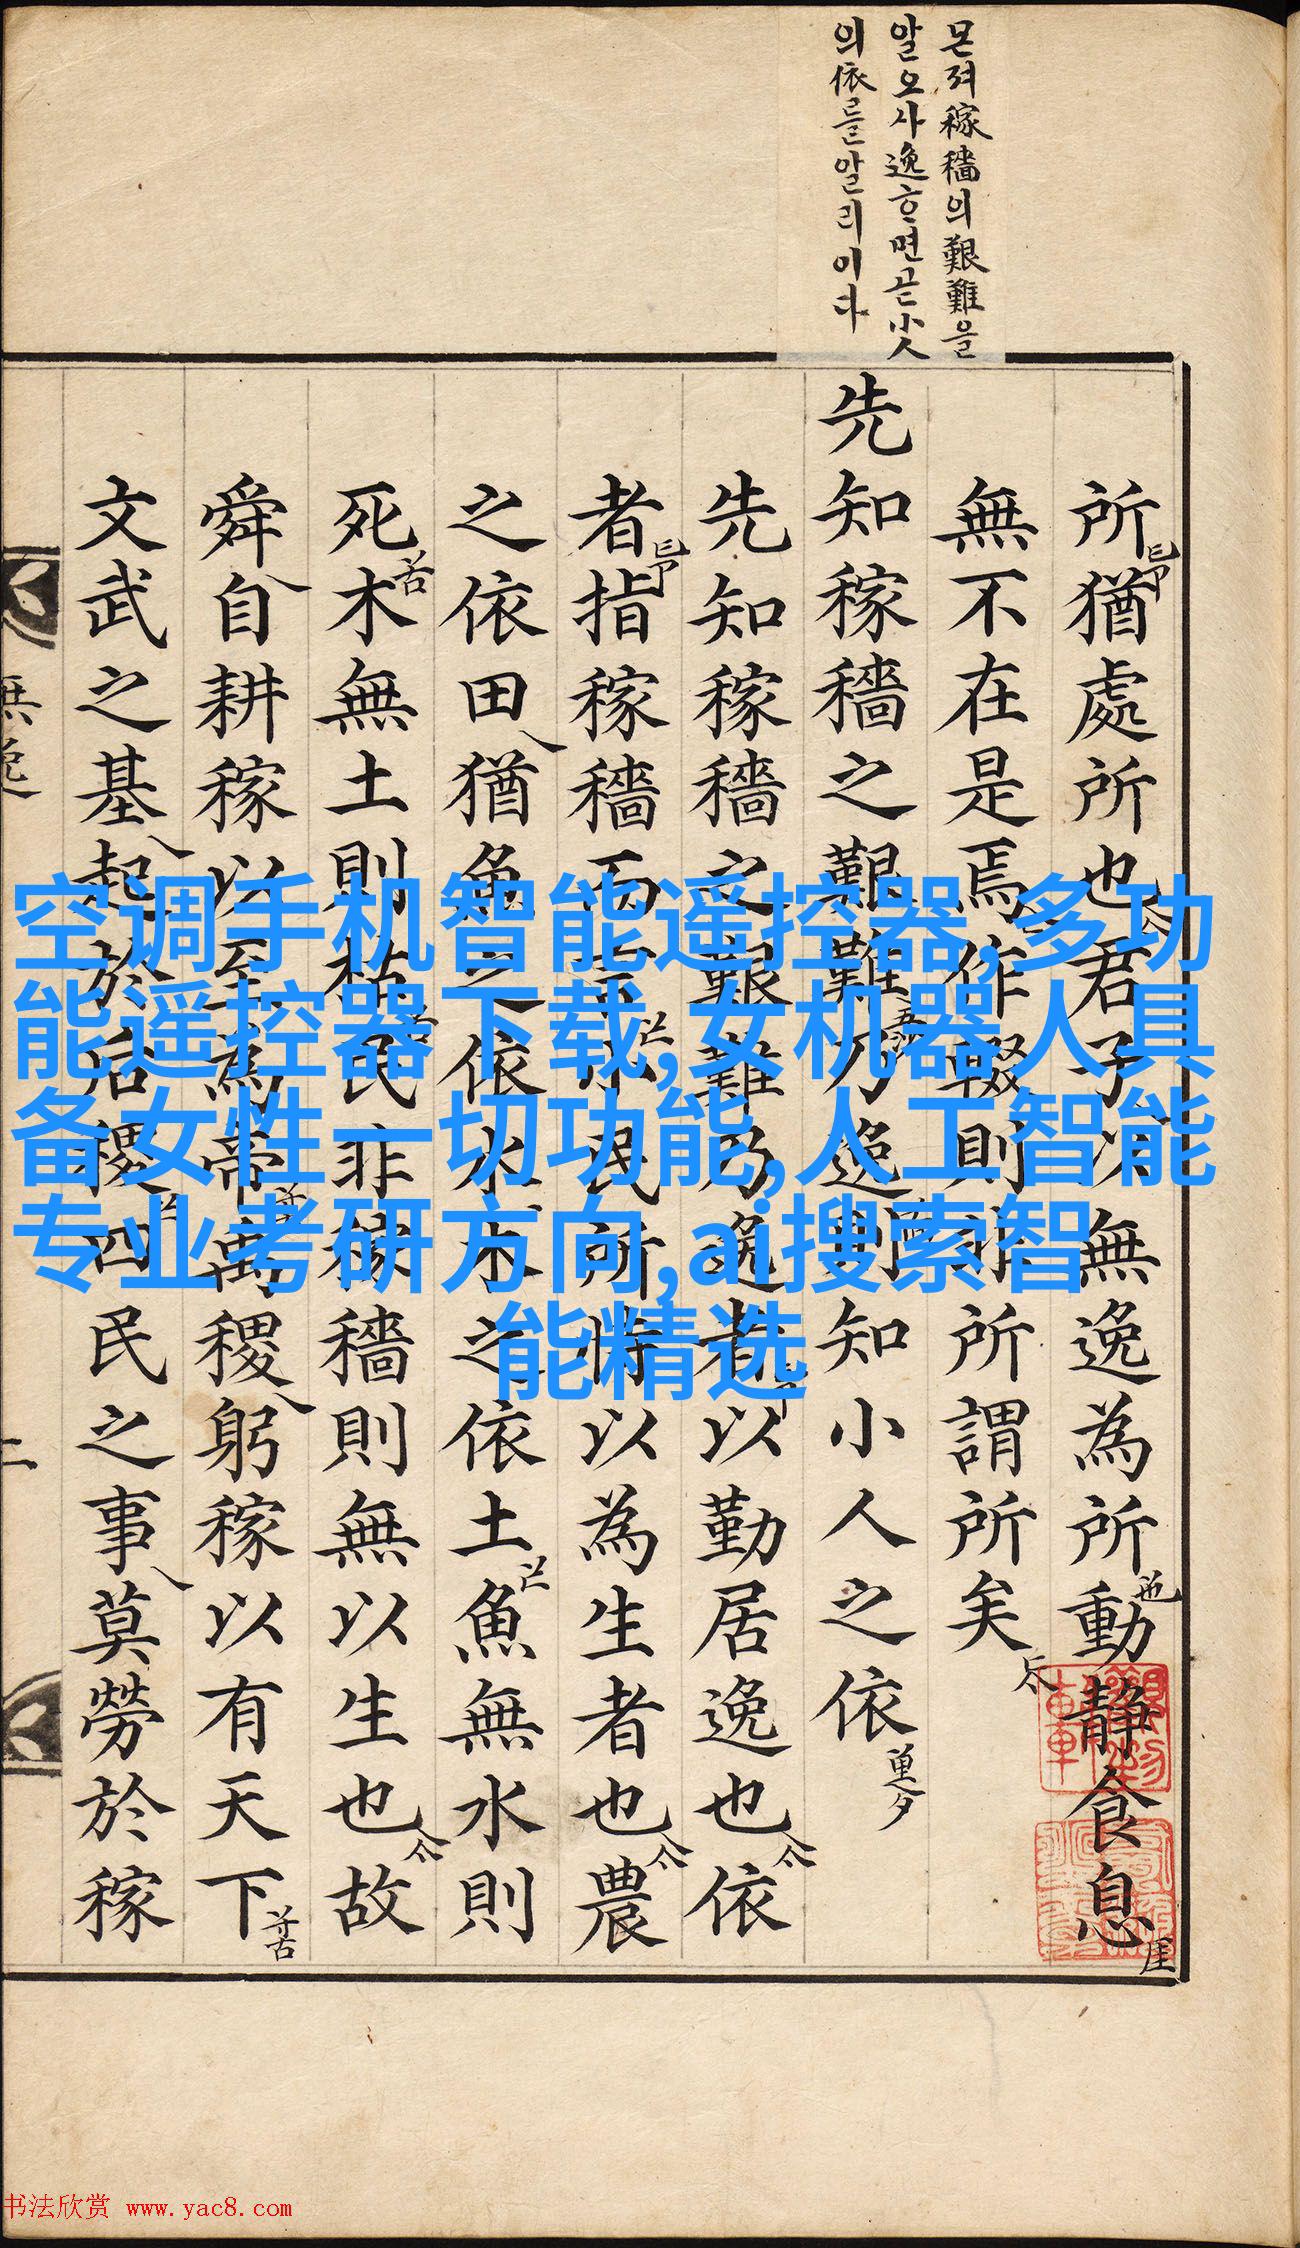 몬져稼穡의艱難을
알오사逸ᄒᆞ면곧小人
의依를알리이다
所猶處所也君子以無逸為所動静食息
無不在是焉作輟則非所謂所矣
先知稼穡之艱難乃逸則知小人之依
先知稼穡之艱難乃逸者以勤居逸也依
者指稼穡而言小民所恃以為生者也農
之依田猶魚之依水木之依土魚無水則
死木無土則枯民非稼穡則無以生也故
舜自耕稼以至為帝禹稷躬稼以有天下
文武之基起於后稷四民之事莫勞於稼
無逸
二
空调手机智能遥控器,多功
能遥控器下载,女机器人具
备女性一切功能,人工智能
专业考研方向,ai搜索智
能精选
书法欣赏 www.yac8.com